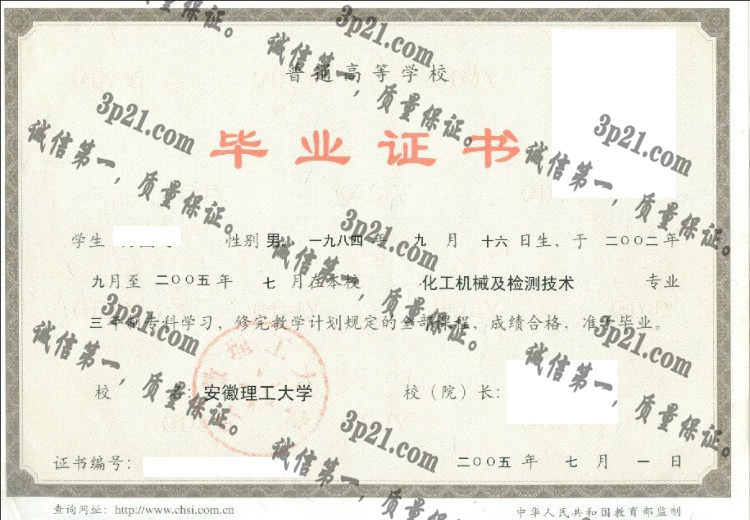 3p21.com
诚信第一，质量保证。
普通高等学校
毕业证书
学生 性别 男 一九八四年 九 月 十六日生，于 二〇〇二年
九月至 二〇〇五年 七 月在本校 化工机械及检测技术 专业
三年制专科学习，修完教学计划规定的全部课程，成绩合格，准予毕业。
校 名：安徽理工大学 校（院）长：
证书编号： 二〇〇五 年 七 月 一 日
查询网址：http://www.chsi.com.cn 中华人民共和国教育部监制
3p21.com
诚信第一，质量保证。
3p21.com
诚信第一，质量保证。
3p21.com
诚信第一，质量保证。
3p21.com
诚信第一，质量保证。
3p21.com
诚信第一，质量保证。
3p21.com
诚信第一，质量保证。
3p21.com
诚信第一，质量保证。